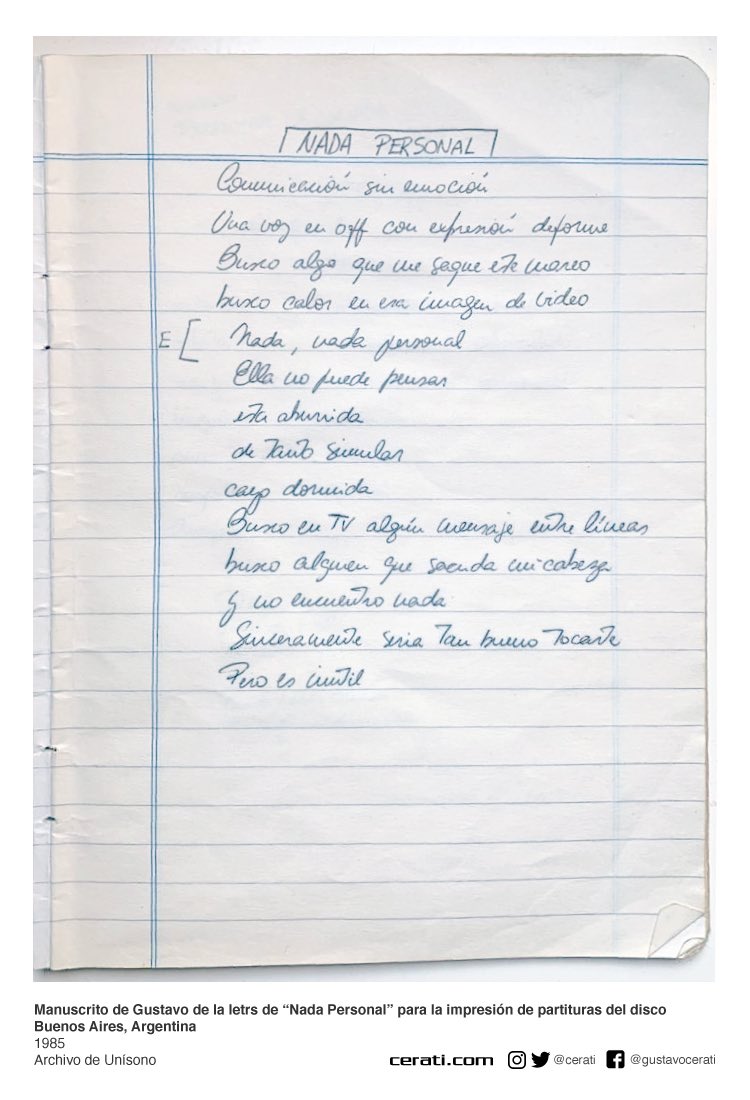 NADA PERSONAL
Comunicación sin emoción
Una voz en off con expresión deforme
Busco algo que me saque este mareo
busco calor en esa imagen de video
E [ Nada, nada personal
Ella no puede pensar
esta aburrida
de tanto simular
cayo dormida
Busco en TV algún mensaje entre líneas
busco alguien que sacuda mi cabeza
y no encuentro nada
Sinceramente seria tan bueno tocarte
Pero es inutil
Manuscrito de Gustavo de la letrs de “Nada Personal” para la impresión de partituras del disco
Buenos Aires, Argentina
1985
Archivo de Unísono
cerati.com @cerati @gustavocerati